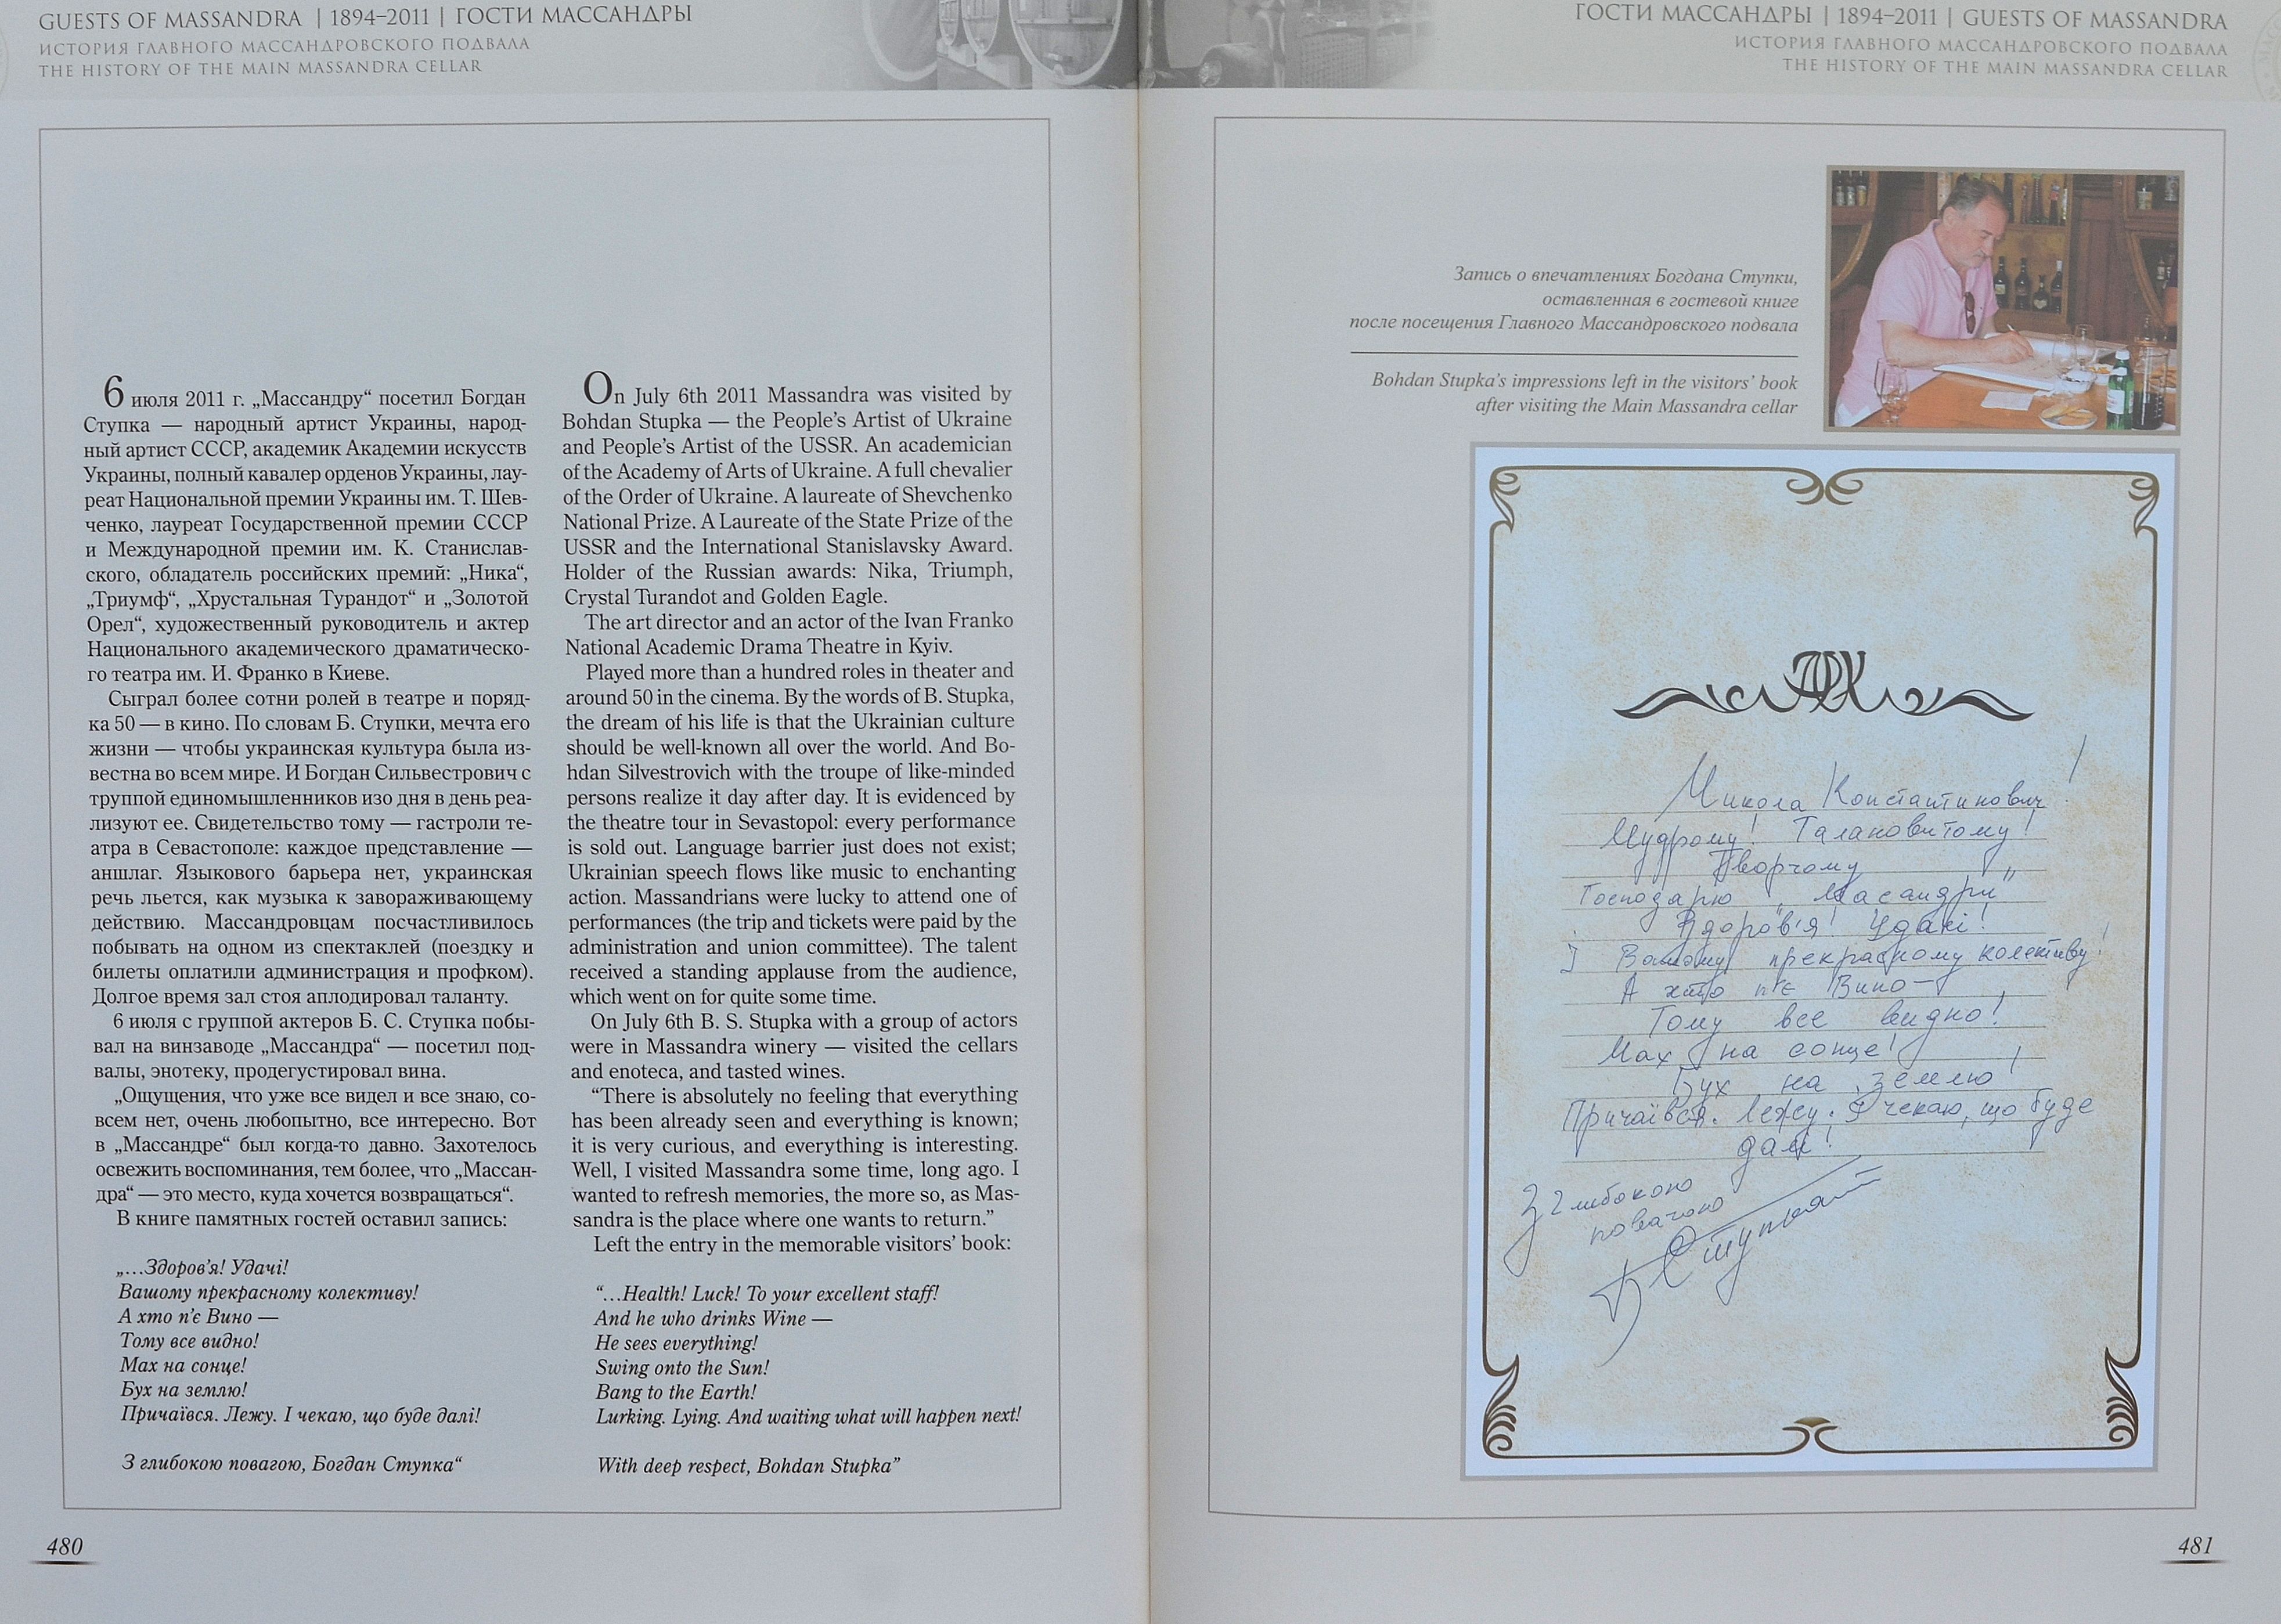 GUESTS OF MASSANDRA | 1894–2011 | ГОСТИ МАССАНДРЫ
ИСТОРИЯ ГЛАВНОГО МАССАНДРОВСКОГО ПОДВАЛА
THE HISTORY OF THE MAIN MASSANDRA CELLAR
6 июля 2011 г. „Массандру“ посетил Богдан
Ступка — народный артист Украины, народ-
ный артист СССР, академик Академии искусств
Украины, полный кавалер орденов Украины, лау-
реат Национальной премии Украины им. Т. Шев-
ченко, лауреат Государственной премии СССР
и Международной премии им. К. Станислав-
ского, обладатель российских премий: „Ника“,
„Триумф“, „Хрустальная Турандот“ и „Золотой
Орел“, художественный руководитель и актер
Национального академического драматическо-
го театра им. И. Франко в Киеве.
Сыграл более сотни ролей в театре и поряд-
ка 50 — в кино. По словам Б. Ступки, мечта его
жизни — чтобы украинская культура была из-
вестна во всем мире. И Богдан Сильвестрович с
труппой единомышленников изо дня в день реа-
лизуют ее. Свидетельство тому — гастроли те-
атра в Севастополе: каждое представление —
аншлаг. Языкового барьера нет, украинская
речь льется, как музыка к завораживающему
действию. Массандровцам посчастливилось
побывать на одном из спектаклей (поездку и
билеты оплатили администрация и профком).
Долгое время зал стоя аплодировал таланту.
6 июля с группой актеров Б. С. Ступка побы-
вал на винзаводе „Массандра“ — посетил под-
валы, энотеку, продегустировал вина.
„Ощущения, что уже все видел и все знаю, со-
всем нет, очень любопытно, все интересно. Вот
в „Массандре“ был когда-то давно. Захотелось
освежить воспоминания, тем более, что „Массан-
дра“ — это место, куда хочется возвращаться“.
В книге памятных гостей оставил запись:
„…Здоров'я! Удачі!
Вашому прекрасному колективу!
А хто п'є Вино —
Тому все видно!
Мах на сонце!
Бух на землю!
Причаївся. Лежу. І чекаю, що буде далі!
З глибокою повагою, Богдан Ступка“
480
On July 6th 2011 Massandra was visited by
Bohdan Stupka — the People's Artist of Ukraine
and People's Artist of the USSR. An academician
of the Academy of Arts of Ukraine. A full chevalier
of the Order of Ukraine. A laureate of Shevchenko
National Prize. A Laureate of the State Prize of the
USSR and the International Stanislavsky Award.
Holder of the Russian awards: Nika, Triumph,
Crystal Turandot and Golden Eagle.
The art director and an actor of the Ivan Franko
National Academic Drama Theatre in Kyiv.
Played more than a hundred roles in theater and
around 50 in the cinema. By the words of B. Stupka,
the dream of his life is that the Ukrainian culture
should be well-known all over the world. And Bo-
hdan Silvestrovich with the troupe of like-minded
persons realize it day after day. It is evidenced by
the theatre tour in Sevastopol: every performance
is sold out. Language barrier just does not exist;
Ukrainian speech flows like music to enchanting
action. Massandrians were lucky to attend one of
performances (the trip and tickets were paid by the
administration and union committee). The talent
received a standing applause from the audience,
which went on for quite some time.
On July 6th B. S. Stupka with a group of actors
were in Massandra winery — visited the cellars
and enoteca, and tasted wines.
“There is absolutely no feeling that everything
has been already seen and everything is known;
it is very curious, and everything is interesting.
Well, I visited Massandra some time, long ago. I
wanted to refresh memories, the more so, as Mas-
sandra is the place where one wants to return.”
Left the entry in the memorable visitors' book:
“…Health! Luck! To your excellent staff!
And he who drinks Wine —
He sees everything!
Swing onto the Sun!
Bang to the Earth!
Lurking. Lying. And waiting what will happen next!
With deep respect, Bohdan Stupka”
ГОСТИ МАССАНДРЫ | 1894–2011 | GUESTS OF MASSANDRA
ИСТОРИЯ ГЛАВНОГО МАССАНДРОВСКОГО ПОДВАЛА
THE HISTORY OF THE MAIN MASSANDRA CELLAR
Запись о впечатлениях Богдана Ступки,
оставленная в гостевой книге
после посещения Главного Массандровского подвала
Bohdan Stupka's impressions left in the visitors' book
after visiting the Main Massandra cellar
Микола Константинович!
Мудрому! Талановитому!
Творчому
Господарю „Масандри“
Здоров'я! Удачі!
І Вашому прекрасному колективу!
А хто п'є Вино —
Тому все видно!
Мах на сонце!
Бух на землю!
Причаївся. Лежу. І чекаю, що буде
далі!
З глибокою
повагою
Б Ступка
481